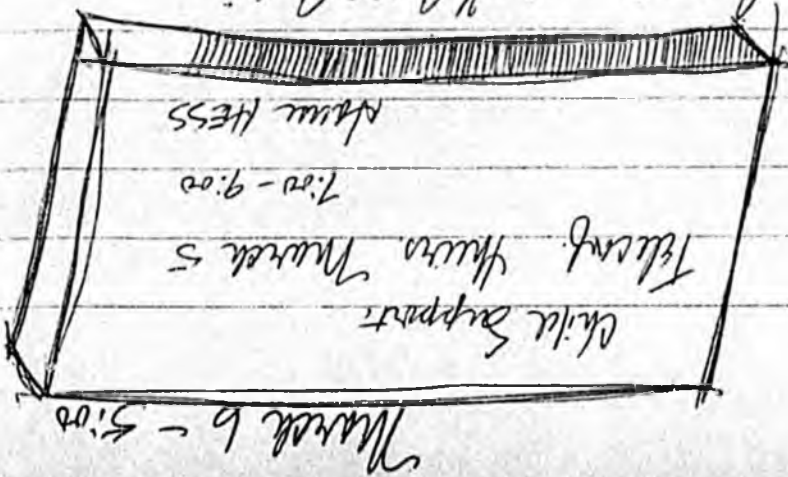 March 6 - 5:00
Child Support:
Teleconf. Thurs. March 5
7:00 - 9:00
HESS